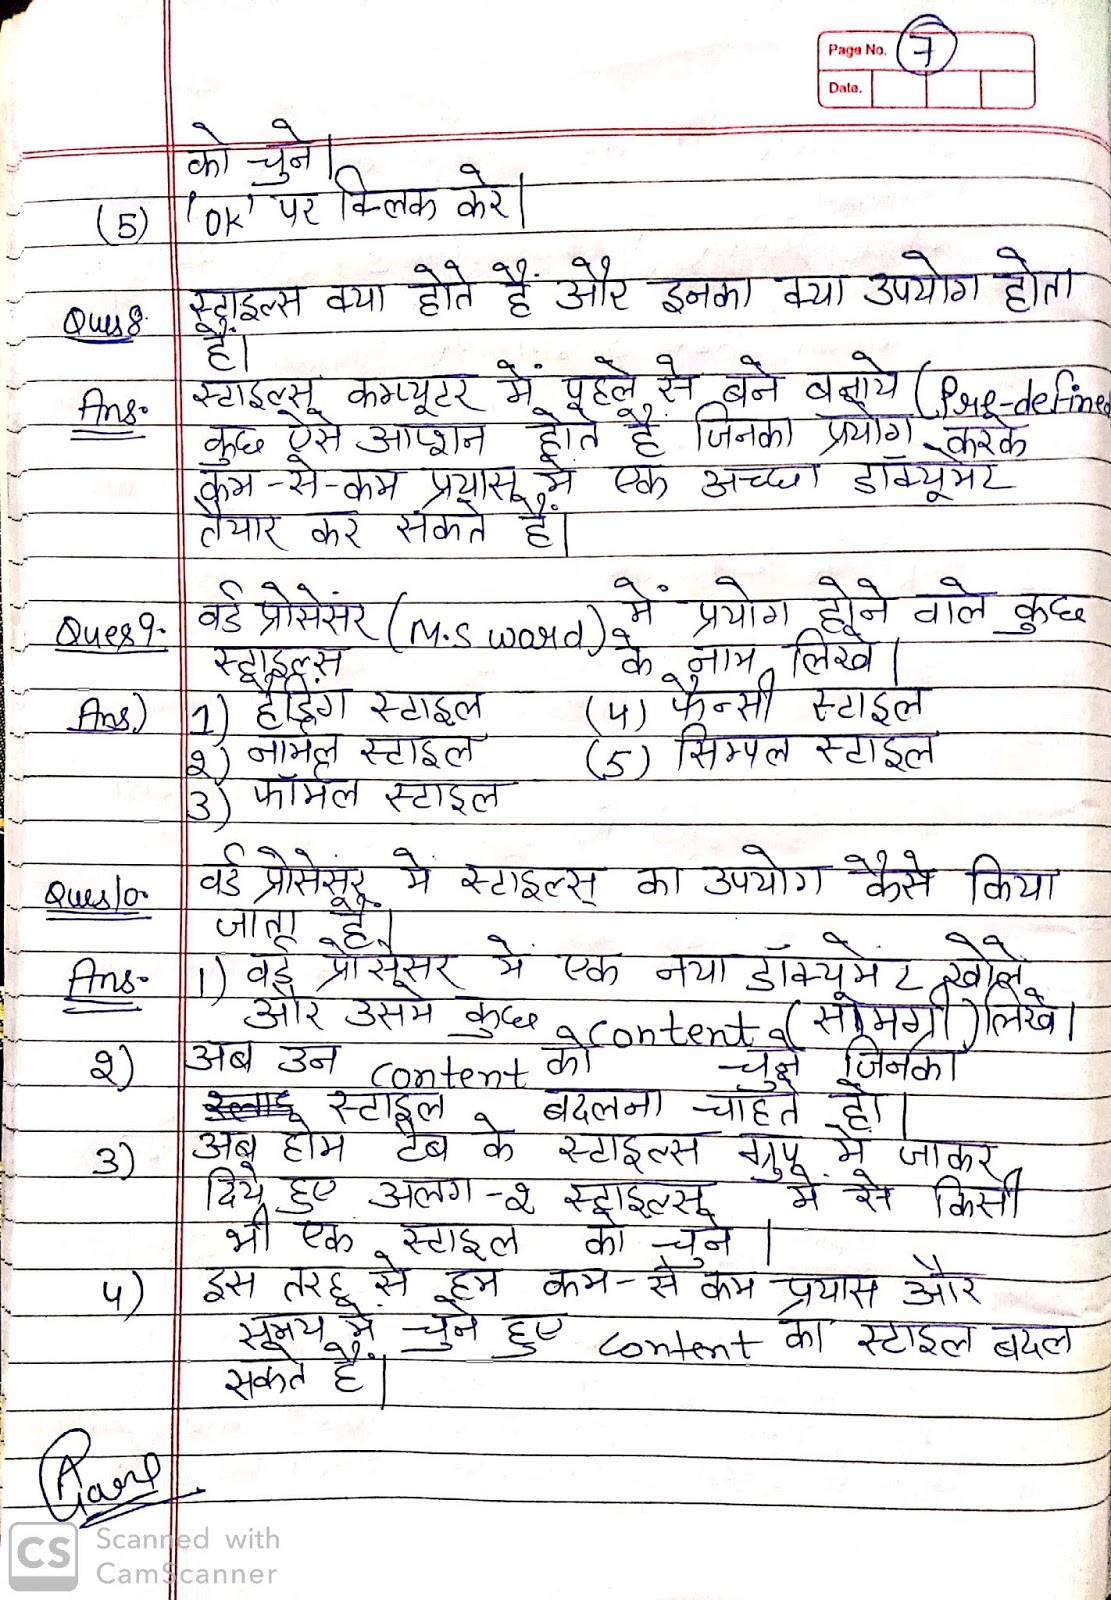 Page No. 7
Date.
को चुने।
(5) 'OK' पर क्लिक करे।
Ques 8. स्टाइल्स क्या होते हैं और इनका क्या उपयोग होता
है।
Ans. स्टाइल्स कम्प्यूटर में पहले से बने बनाये (Pre-defined
कुछ ऐसे आप्शन होते हैं जिनका प्रयोग करके
कम-से-कम प्रयास मे एक अच्छा डॉक्यूमेंट
तैयार कर सकते हैं।
Ques 9. वर्ड प्रोसेसर (M.S word) में प्रयोग होने वाले कुछ
स्टाइल्स के नाम लिखे।
Ans.) 1) हैडिंग स्टाइल (4) फैन्सी स्टाइल
2) नार्मल स्टाइल (5) सिम्पल स्टाइल
3) फॉर्मल स्टाइल
Ques 10. वर्ड प्रोसेसर में स्टाइल्स का उपयोग कैसे किया
जाता है।
Ans. 1) वर्ड प्रोसेसर में एक नया डॉक्यूमेंट खोले
और उसमे कुछ content (सामग्री) लिखे।
2) अब उन content को चुने जिनका
स्टाइल बदलना चाहते हो।
3) अब होम टैब के स्टाइल्स ग्रुप में जाकर
दिये हुए अलग-2 स्टाइल्स में से किसी
भी एक स्टाइल को चुने।
4) इस तरह से हम कम-से कम प्रयास और
समय में चुने हुए content का स्टाइल बदल
सकते हैं।
CS Scanned with
CamScanner